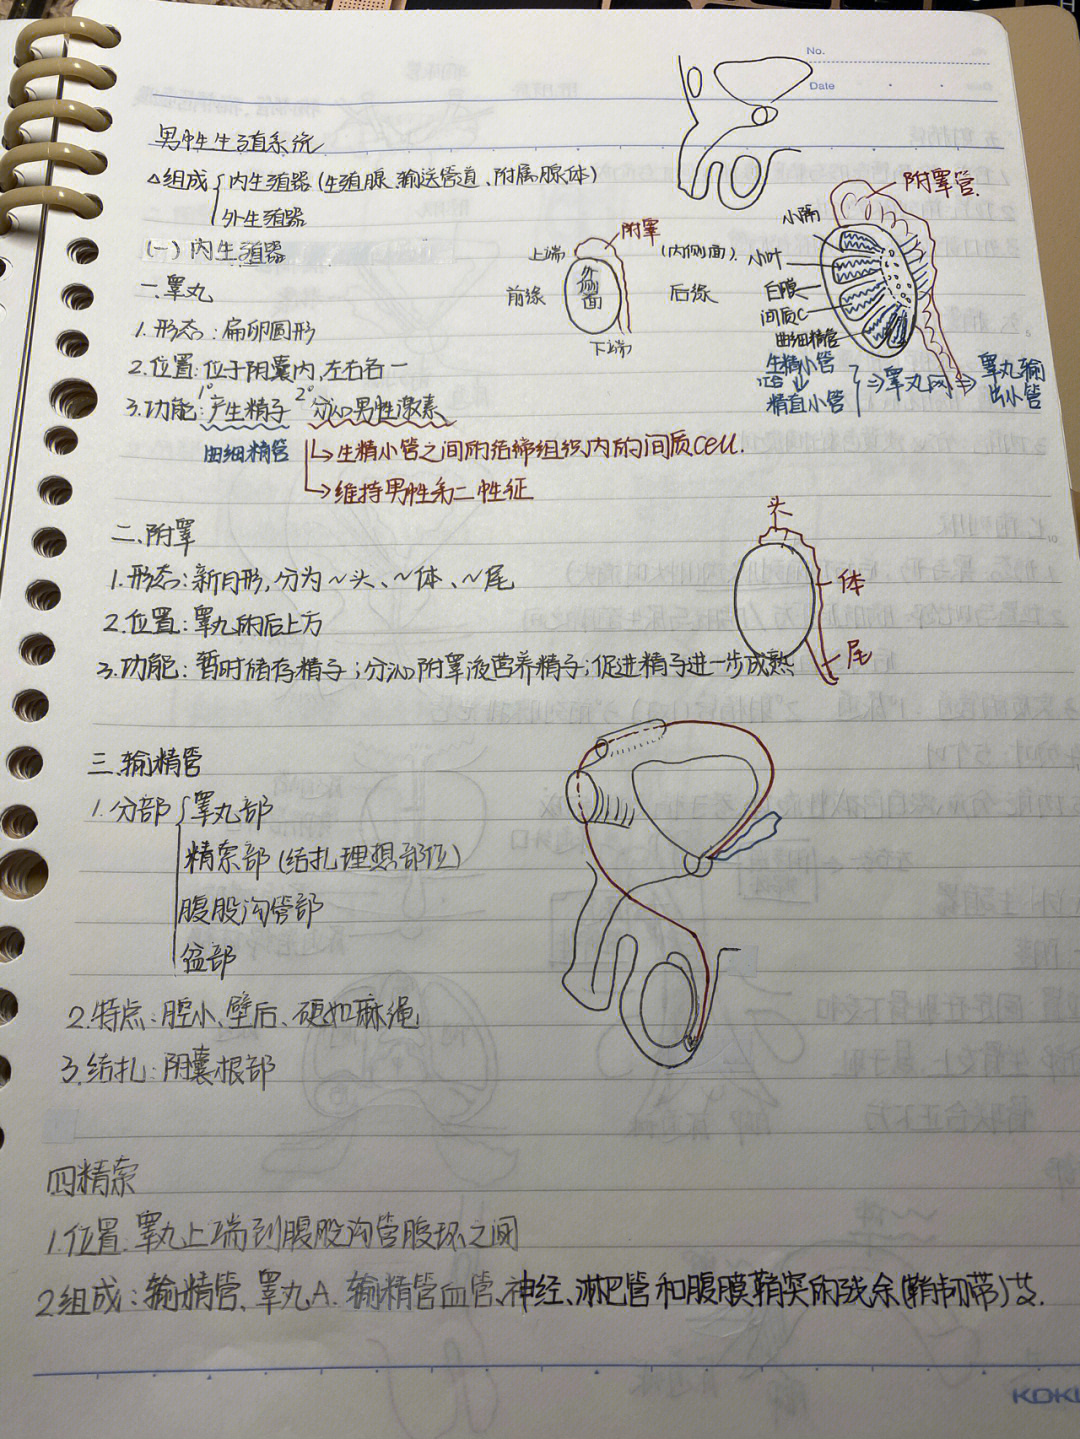 No.
Date
男性生殖系统
△组成 { 内生殖器(生殖腺、输送管道、附属腺体)
外生殖器
(一)内生殖器
一.睾丸
1.形态:扁卵圆形
2.位置:位于阴囊内,左右各一
3.功能:1°产生精子 2°分泌男性激素
曲细精管 →生精小管之间的结缔组织内的间质cell.
→维持男性第二性征
上端 附睾
前缘 外侧面 后缘
下端
(内侧面)
附睾管
小隔
小叶
白膜
间质C
曲细精管
生精小管
精直小管
⇒睾丸网⇒睾丸输出小管
二.附睾
1.形态:新月形,分为~头、~体、~尾
2.位置:睾丸的后上方
3.功能:暂时储存精子;分泌附睾液营养精子;促进精子进一步成熟
头
体
尾
三.输精管
1.分部 { 睾丸部
精索部(结扎理想部位)
腹股沟管部
盆部
2.特点:腔小、壁后、硬如麻绳
3.结扎:阴囊根部
四精索
1.位置:睾丸上端到腹股沟管腹环之间
2.组成:输精管、睾丸A.输精管血管、神经、淋巴管和腹膜鞘突的残余(鞘韧带)等.